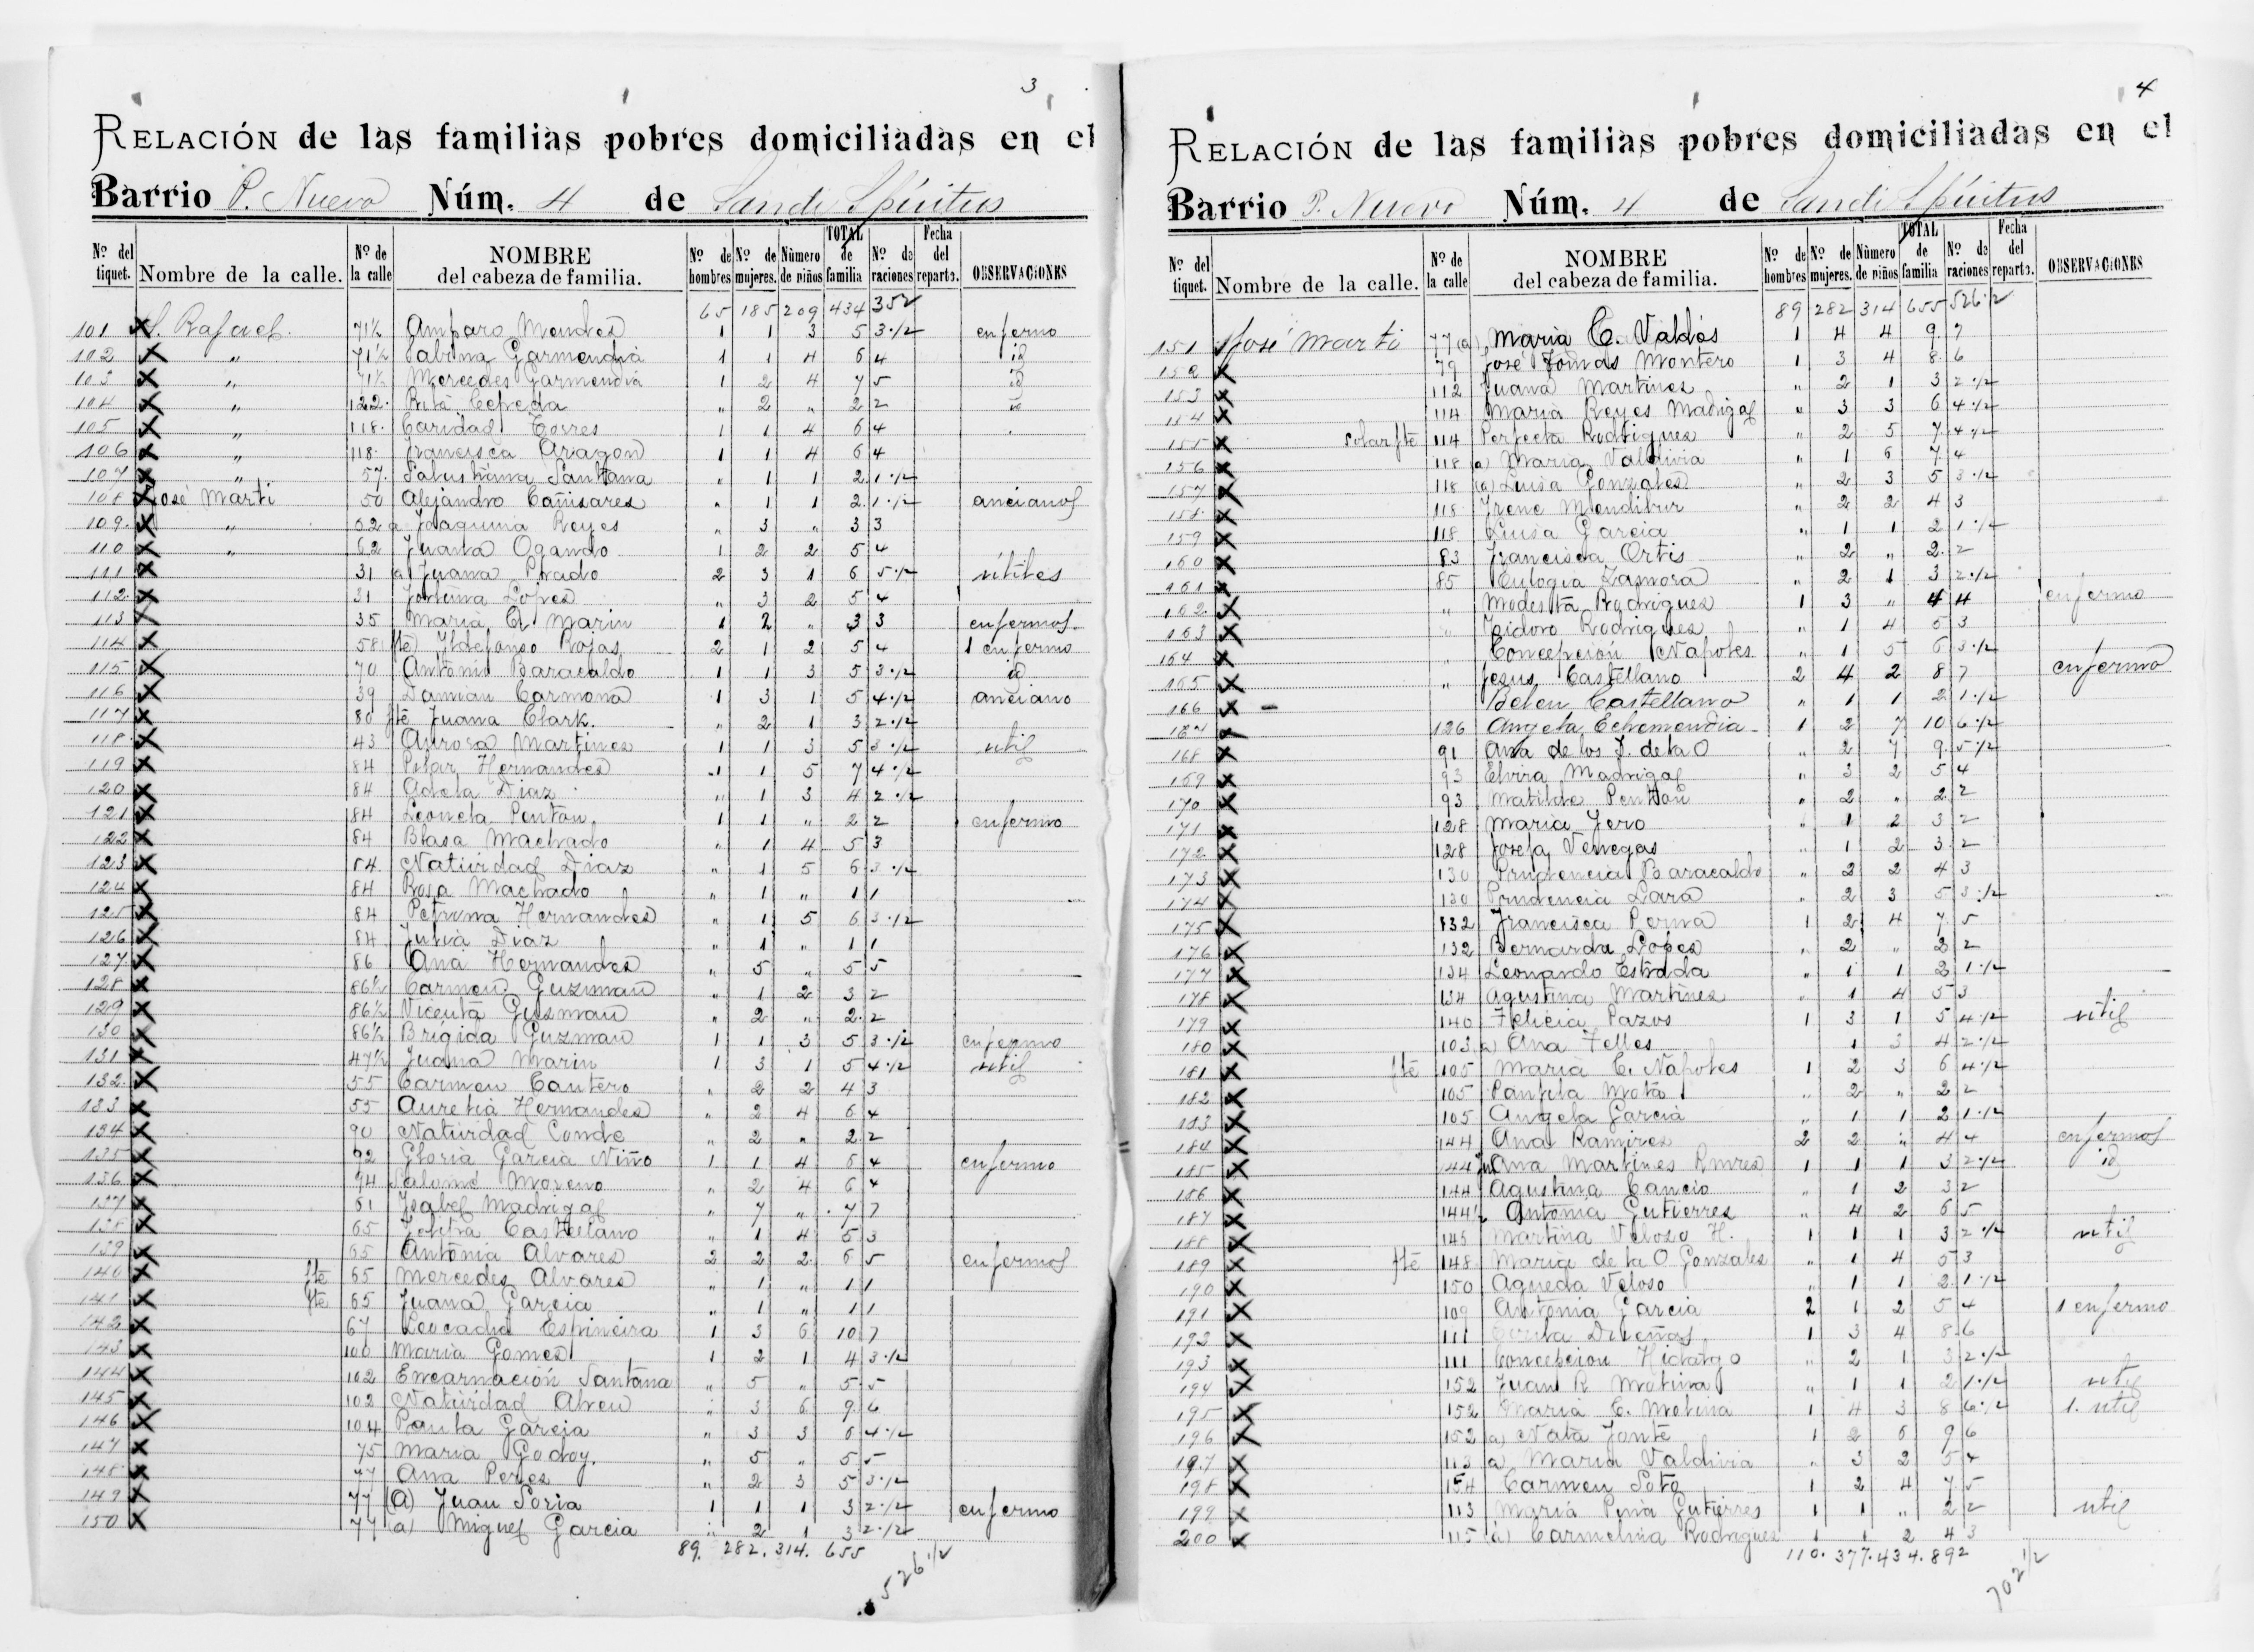 3
RELACIÓN de las familias pobres domiciliadas en el
Barrio P. Nuevo Núm. 4 de Sancti Spíritus
Nº del tiquet. Nombre de la calle. Nº de la calle NOMBRE del cabeza de familia. Nº de hombres Nº de mujeres. Número de niños TOTAL de familia Nº de raciones Fecha del reparto. OBSERVACIONES
65 185 209 434 352
101 X S. Rafael. 71½ Amparo Mendes 1 1 3 5 3·½ enfermo
102 X " 71½ Sabina Garmendia 1 1 4 6 4 id
103 X " 71½ Mercedes Garmendia 1 2 4 7 5 id
104 X " 122. Rita Cepeda " 2 " 2 2 id
105 X " 118. Caridad Torres 1 1 4 6 4
106 X " 118. Francisca Aragon 1 1 4 6 4
107 X " 57. Salustiana Santana " 1 1 2 1·½
108 X José Marti 50 Alejandro Cañisares " 1 1 2 1·½ ancianos
109 X " 62 a Joaquina Reyes " 3 " 3 3
110 X " 62 Juana Ogando 1 2 2 5 4
111 X 31 (a) Juana Prado 2 3 1 6 5·½ utiles
112 X 31 Fortuna Lopes " 3 2 5 4
113 X 35 Maria C. Marin 1 2 " 3 3 enfermos
114 X 58 fte) Ildefonso Rojas 2 1 2 5 4 1 enfermo
115 X 70 Antonio Baracaldo 1 1 3 5 3·½ id
116 X 39 Damian Carmona 1 3 1 5 4·½ anciano
117 X 80 fte Juana Clark. " 2 1 3 2·½
118 X 43 Aurora Martines 1 1 3 5 3·½ util
119 X 84 Pilar Hernandes 1 1 5 7 4·½
120 X 84 Adela Diaz " 1 3 4 2·½
121 X 84 Leonela Penton 1 1 " 2 2 enfermo
122 X 84 Blasa Machado " 1 4 5 3
123 X 84. Natividad Diaz " 1 5 6 3·½
124 X 84 Rosa Machado " 1 " 1 1
125 X 84 Petrona Hernandes " 1 5 6 3·½
126 X 84 Julia Diaz " 1 " 1 1
127 X 86 Ana Hernandes " 5 " 5 5
128 X 86½ Carmen Guzman " 1 2 3 2
129 X 86½ Vicenta Gusman " 2 " 2 2
130 X 86½ Brigida Guzman 1 1 3 5 3·½ enfermo
131 X 47½ Juana Marin 1 3 1 5 4·½ util
132 X 55 Carmen Cantero " 2 2 4 3
133 X 55 Aurelia Hernandes " 2 4 6 4
134 X 90 Natividad Conde " 2 " 2 2
135 X 92 Gloria Garcia Niño 1 1 4 6 4 enfermo
136 X 94 Salomé Moreno " 2 4 6 4
137 X 61 Ysabel Madrigal " 7 " 7 7
138 X 65 Castellano " 1 4 5 3
139 X 65 Antonia Alvares 2 2 2 6 5 enfermos
140 X fte 65 Mercedes Alvares " 1 " 1 1
141 X fte 65 Juana Garcia " 1 " 1 1
142 X 67 Leocadia Espineira 1 3 6 10 7
143 X 100 Maria Gomes 1 2 1 4 3·½
144 X 102 Encarnación Santana " 5 " 5 5
145 X 102 Natividad Abreu " 3 6 9 6
146 X 104 Paula Garcia " 3 3 6 4·½
147 X 75 Maria Godoy. " 5 " 5 5
148 X 77 Ana Peres " 2 3 5 3·½
149 X 77 (a) Juan Soria 1 1 1 3 2·½ enfermo
150 X 77 (a) Miguel Garcia " 2 1 3 2·½
89. 282. 314. 655
526½
4
RELACIÓN de las familias pobres domiciliadas en el
Barrio P. Nuevo Núm. 4 de Sancti Spíritus
Nº del tiquet. Nombre de la calle. Nº de la calle NOMBRE del cabeza de familia. Nº de hombres Nº de mujeres. Número de niños TOTAL de familia Nº de raciones Fecha del reparto. OBSERVACIONES
89 282 314 655 526·½
151 José Marti 77 (a) Maria C. Valdés 1 4 4 9 7
152 X 79 José Tomas Montero 1 3 4 8 6
153 X 112 Juana Martines " 2 1 3 2·½
154 X 114 Maria Reyes Madrigal " 3 3 6 4·½
155 X solar fte 114 Perfecta Rodrigues " 2 5 7 4·½
156 X 118 (a) Maria Valdivia " 1 6 7 4
157 X 118 (a) Luisa Gonzales " 2 3 5 3·½
158 X 118 Irene Mendibur " 2 2 4 3
159 X 118 Luisa Garcia " 1 1 2 1·½
160 X 83 Francisca Ortis " 2 " 2 2
161 X 85 Eulogia Zamora " 2 1 3 2·½
162 X " Modesta Rodrigues 1 3 " 4 4 enfermo
163 X " Isidoro Rodrigues " 1 4 5 3
164 X " Concepcion Napoles " 1 5 6 3·½
165 X " Jesus Castellano 2 4 2 8 7 enfermo
166 X - Belen Castellano " 1 1 2 1·½
167 X 126 Angela Echemendia 1 2 7 10 6·½
168 X 91 Ana de los D. de la O " 2 7 9 5·½
169 X 93 Elvira Madrigal " 3 2 5 4
170 X 93 Matilde Penton " 2 " 2 2
171 X 128 Maria Jero " 1 2 3 2
172 X 128 Josefa Venegas " 1 2 3 2
173 X 130 Prudencia Baracaldo " 2 2 4 3
174 X 130 Prudencia Lara " 2 3 5 3·½
175 X 132 Francisca Perna 1 2 4 7 5
176 X 132 Bernarda Lopes " 2 " 2 2
177 X 134 Leonardo Estrada " 1 1 2 1·½
178 X 134 Agustina Martines " 1 4 5 3
179 X 140 Felicia Pazos 1 3 1 5 4·½ util
180 X 103 a) Ana Felles 1 3 4 2·½
181 X fte 105 Maria C. Napoles 1 2 3 6 4·½
182 X 105 Panfila Mota " 2 " 2 2
183 X 105 Angela Garcia " 1 1 2 1·½
184 X 144 Ana Ramires 2 2 " 4 4 enfermos
185 X 144 Ana Martines Rmres 1 1 1 3 2·½ id
186 X 144 Agustina Cancio " 1 2 3 2
187 X 144½ Antonia Gutierres " 4 2 6 5
188 X 145 Martina Veloso H. 1 1 1 3 2·½ util
189 X fte 148 Maria de la O Gonzales " 1 4 5 3
190 X 150 Agueda Veloso " 1 1 2 1·½
191 X 109 Antonia Garcia 2 1 2 5 4 1 enfermo
192 X 111 Dueñas 1 3 4 8 6
193 X 111 Concepcion Hidalgo " 2 1 3 2·½
194 X 152 Juan R. Molina " 1 1 2 1·½ util
195 X 152 Maria C. Molina 1 4 3 8 6·½ 1. util
196 X 152 (a) Nata Jonte 1 2 6 9 6
197 X 113 (a) Maria Valdivia " 3 2 5 4
198 X 154 Carmen Soto 1 2 4 7 5
199 X 113 Maria Pina Gutierres 1 1 " 2 2 util
200 X 115 (a) Carmelina Rodrigues 1 1 2 4 3
110. 377. 434. 892
702½